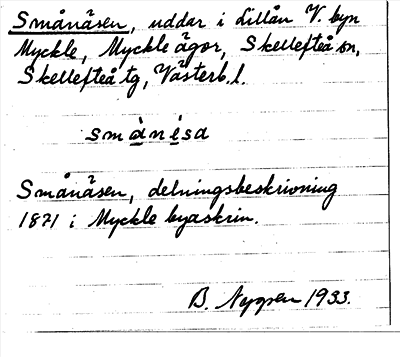 Smånäsen, uddar i Lillån V. byn
Myckle, Myckle ägor, Skellefteå sn,
Skellefteå tg, Västerb. l.
smånèsa
Smånäsen, delningsbeskrivning
1871 i Myckle byaskrin.
B. Nygren 1933.